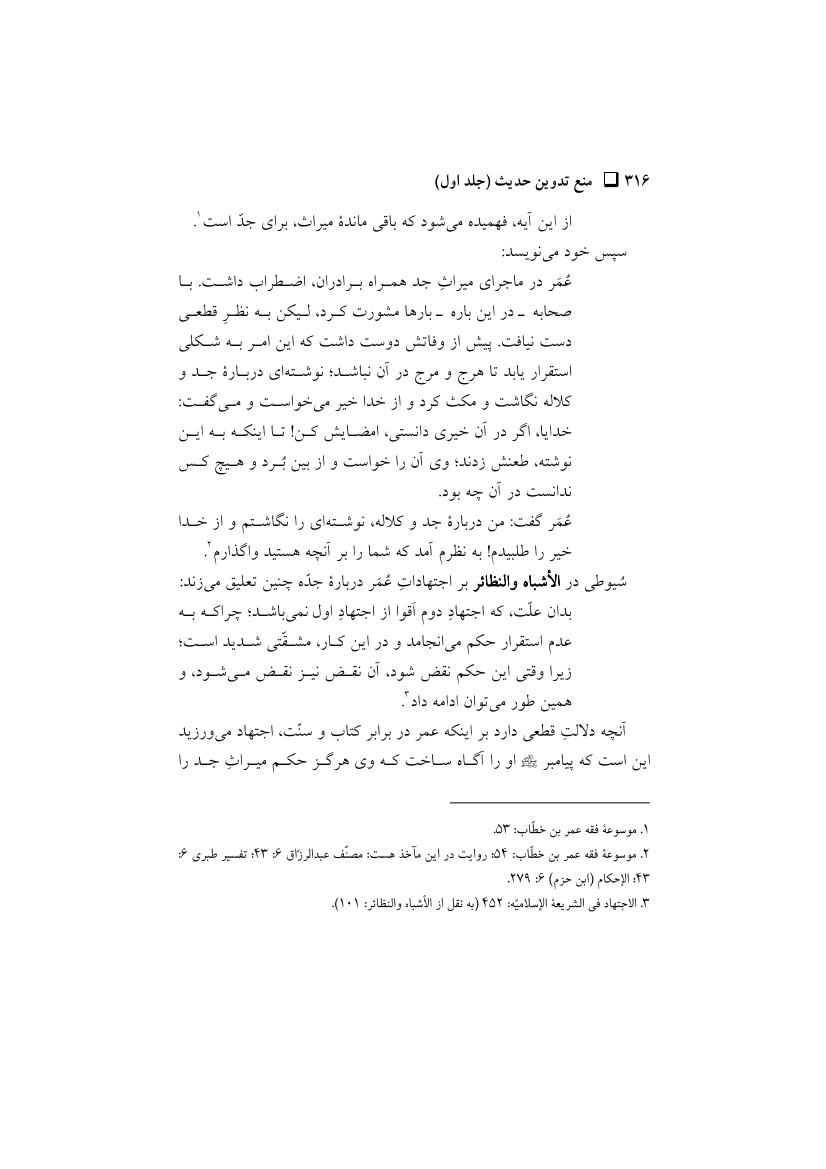 ۳۱۶ ❑ منع تدوین حدیث (جلد اول)
از این آیه، فهمیده می‌شود که باقی ماندهٔ میراث، برای جدّ است۱.
سپس خود می‌نویسد:
عُمَر در ماجرای میراثِ جد همراه برادران، اضطراب داشت. با
صحابه ـ در این باره ـ بارها مشورت کرد، لیکن به نظرِ قطعی
دست نیافت. پیش از وفاتش دوست داشت که این امر به شکلی
استقرار یابد تا هرج و مرج در آن نباشد؛ نوشته‌ای دربارهٔ جد و
کلاله نگاشت و مکث کرد و از خدا خیر می‌خواست و می‌گفت:
خدایا، اگر در آن خیری دانستی، امضایش کن! تا اینکه به این
نوشته، طعنش زدند؛ وی آن را خواست و از بین بُرد و هیچ کس
ندانست در آن چه بود.
عُمَر گفت: من دربارهٔ جد و کلاله، نوشته‌ای را نگاشتم و از خدا
خیر را طلبیدم! به نظرم آمد که شما را بر آنچه هستید واگذارم۲.
سُیوطی در الأشباه والنظائر بر اجتهاداتِ عُمَر دربارهٔ جدّه چنین تعلیق می‌زند:
بدان علّت، که اجتهادِ دوم اَقوا از اجتهادِ اول نمی‌باشد؛ چراکه به
عدم استقرار حکم می‌انجامد و در این کار، مشقّتی شدید است؛
زیرا وقتی این حکم نقض شود، آن نقض نیز نقض می‌شود، و
همین طور می‌توان ادامه داد۳.
آنچه دلالتِ قطعی دارد بر اینکه عمر در برابر کتاب و سنّت، اجتهاد می‌ورزید
این است که پیامبر ﷺ او را آگاه ساخت که وی هرگز حکم میراثِ جد را
۱. موسوعهٔ فقه عمر بن خطّاب: ۵۳.
۲. موسوعهٔ فقه عمر بن خطّاب: ۵۴؛ روایت در این مآخذ هست: مصنّف عبدالرزّاق ۶: ۴۳؛ تفسیر طبری ۶:
۴۳؛ الإحکام (ابن حزم) ۶: ۲۷۹.
۳. الاجتهاد فی الشریعهٔ الإسلامیّه: ۴۵۲ (به نقل از الأشباه والنظائر: ۱۰۱).